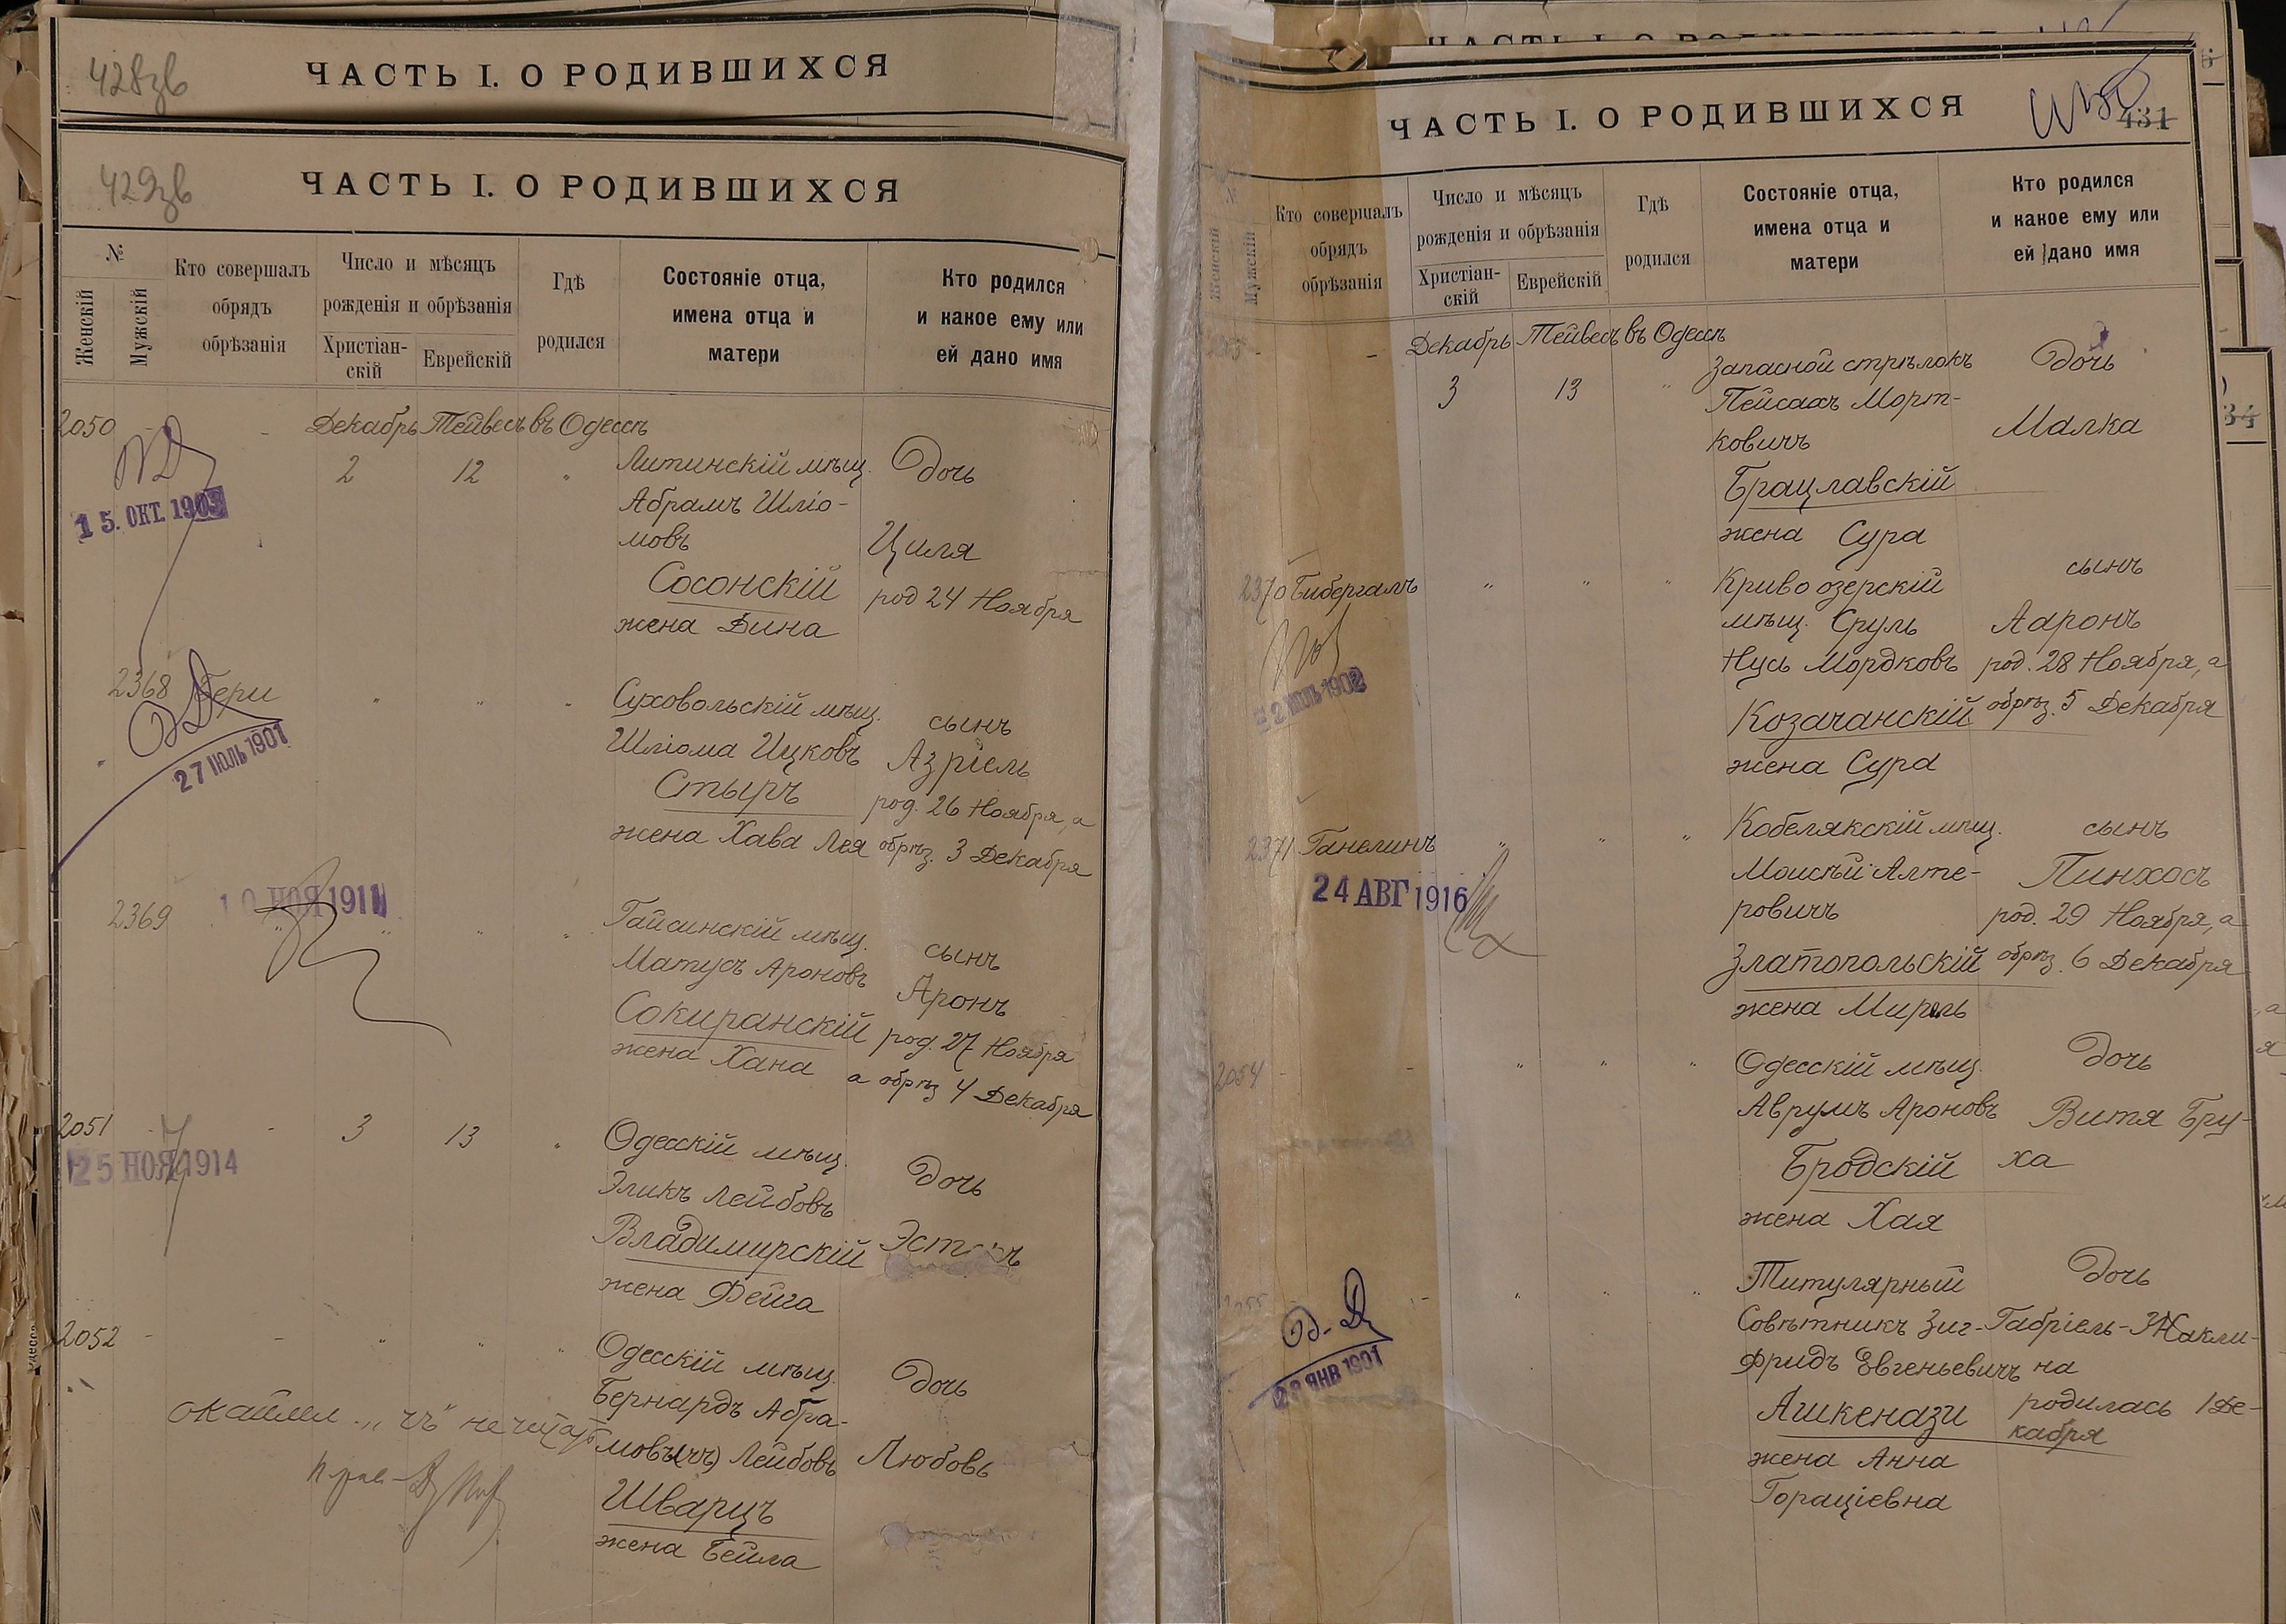 428зв
ЧАСТЬ I. О РОДИВШИХСЯ
429зв
ЧАСТЬ I. О РОДИВШИХСЯ
№
Женскій
Мужскій
Кто совершалъ
обрядъ
обрѣзанія
Число и мѣсяцъ
рожденія и обрѣзанія
Христіан-
скій
Еврейскій
Гдѣ
родился
Состояніе отца,
имена отца и
матери
Кто родился
и какое ему или
ей дано имя
2050 - - Декабрь Тейвесъ въ Одессѣ
2 12 " Литинскій мѣщ. Дочь
15. ОКТ. 1903
Абрамъ Шліо-
мовъ Циля
Сосонскій род 24 Ноября
жена Дина
2368 Бери " " " Суховольскій мѣщ. сынъ
27 ІЮЛЬ 1901
Шліома Ицковъ Азріель
Стыръ род. 26 Ноября, а
жена Хава Лея обрѣз. 3 Декабря
10 НОЯ 1911
2369 " " " " Гайсинскій мѣщ. сынъ
Матусъ Ароновъ Аронъ
Сокиранскій род. 27 Ноября
жена Хана а обрѣз 4 Декабря
2051 - - 3 13 " Одесскій мѣщ. Дочь
25 НОЯ 1914
Эликъ Лейбовъ
Владимирскій
жена Фейга
2052 - - " " " Одесскій мѣщ. Дочь
Бернардъ Абра-
"чъ" не читать
мовъ(чъ) Лейбовъ Любовь
Шварцъ
жена Бейла
ЧАСТЬ I. О РОДИВШИХСЯ
431
Женскій
Мужскій
Кто совершалъ
обрядъ
обрѣзанія
Число и мѣсяцъ
рожденія и обрѣзанія
Христіан-
скій
Еврейскій
Гдѣ
родился
Состояніе отца,
имена отца и
матери
Кто родился
и какое ему или
ей дано имя
- - Декабрь Тейвесъ въ Одессѣ
3 13 " Запасной стрѣлокъ Дочь
Пейсахъ Морт-
ковичъ Малка
Брацлавскій
жена Сура
2370 Бибергалъ " " " Кривоозерскій сынъ
мѣщ. Сруль Ааронъ
2 ІЮЛЬ 1902
Нусь Мордковъ род. 28 Ноября, а
Козачанскій обрѣз. 5 Декабря
жена Сура
2371 Ганелинъ " " " Кобелякскій мѣщ. сынъ
24 АВГ 1916
Моисѣй Алте- Пинхосъ
ровичъ род. 29 Ноября, а
Златопольскій обрѣз. 6 Декабря
жена Мирель
2054 - - " " " Одесскій мѣщ. Дочь
Аврумъ Ароновъ Витя Бру-
Бродскій ха
жена Хая
- " " " Титулярный Дочь
Совѣтникъ Зиг- Габріель-Жакли-
28 ЯНВ 1901
фридъ Евгеньевичъ на
Ашкенази родилась 1 Де-
кабря
жена Анна
Гораціевна
34